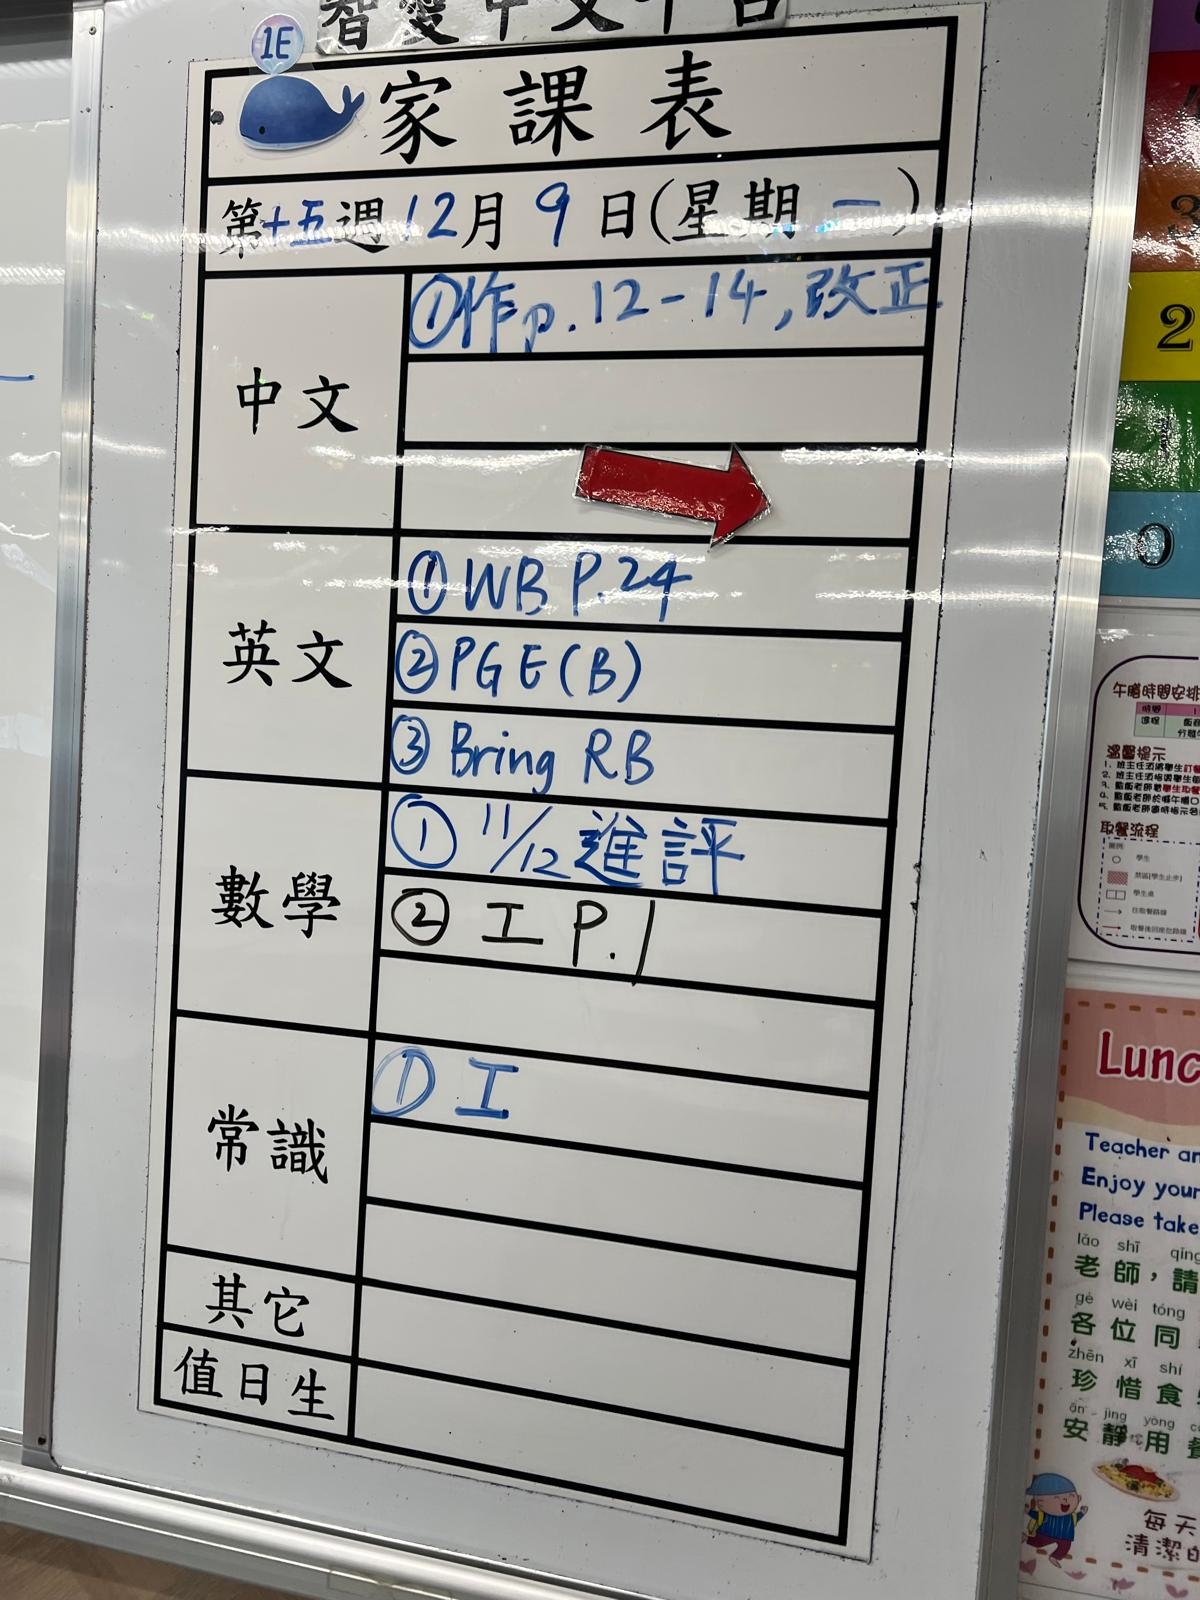 1E
家課表
第十五週12月9日(星期一)
中文
①作p.12-14,改正
英文
①WB P.24
②PGE(B)
③Bring RB
數學
①11/12進評
②工 P.1
常識
①工
其它
值日生
3
2
1
0
午膳時間安排
溫馨提示
取餐流程
學生
Lunc
Teacher an
Enjoy your
Please take
lǎo shī qǐng
老師，請
gè wèi tóng
各位同
zhēn xī shí
珍惜食
ān jìng yòng
安靜用餐
每天
清潔的